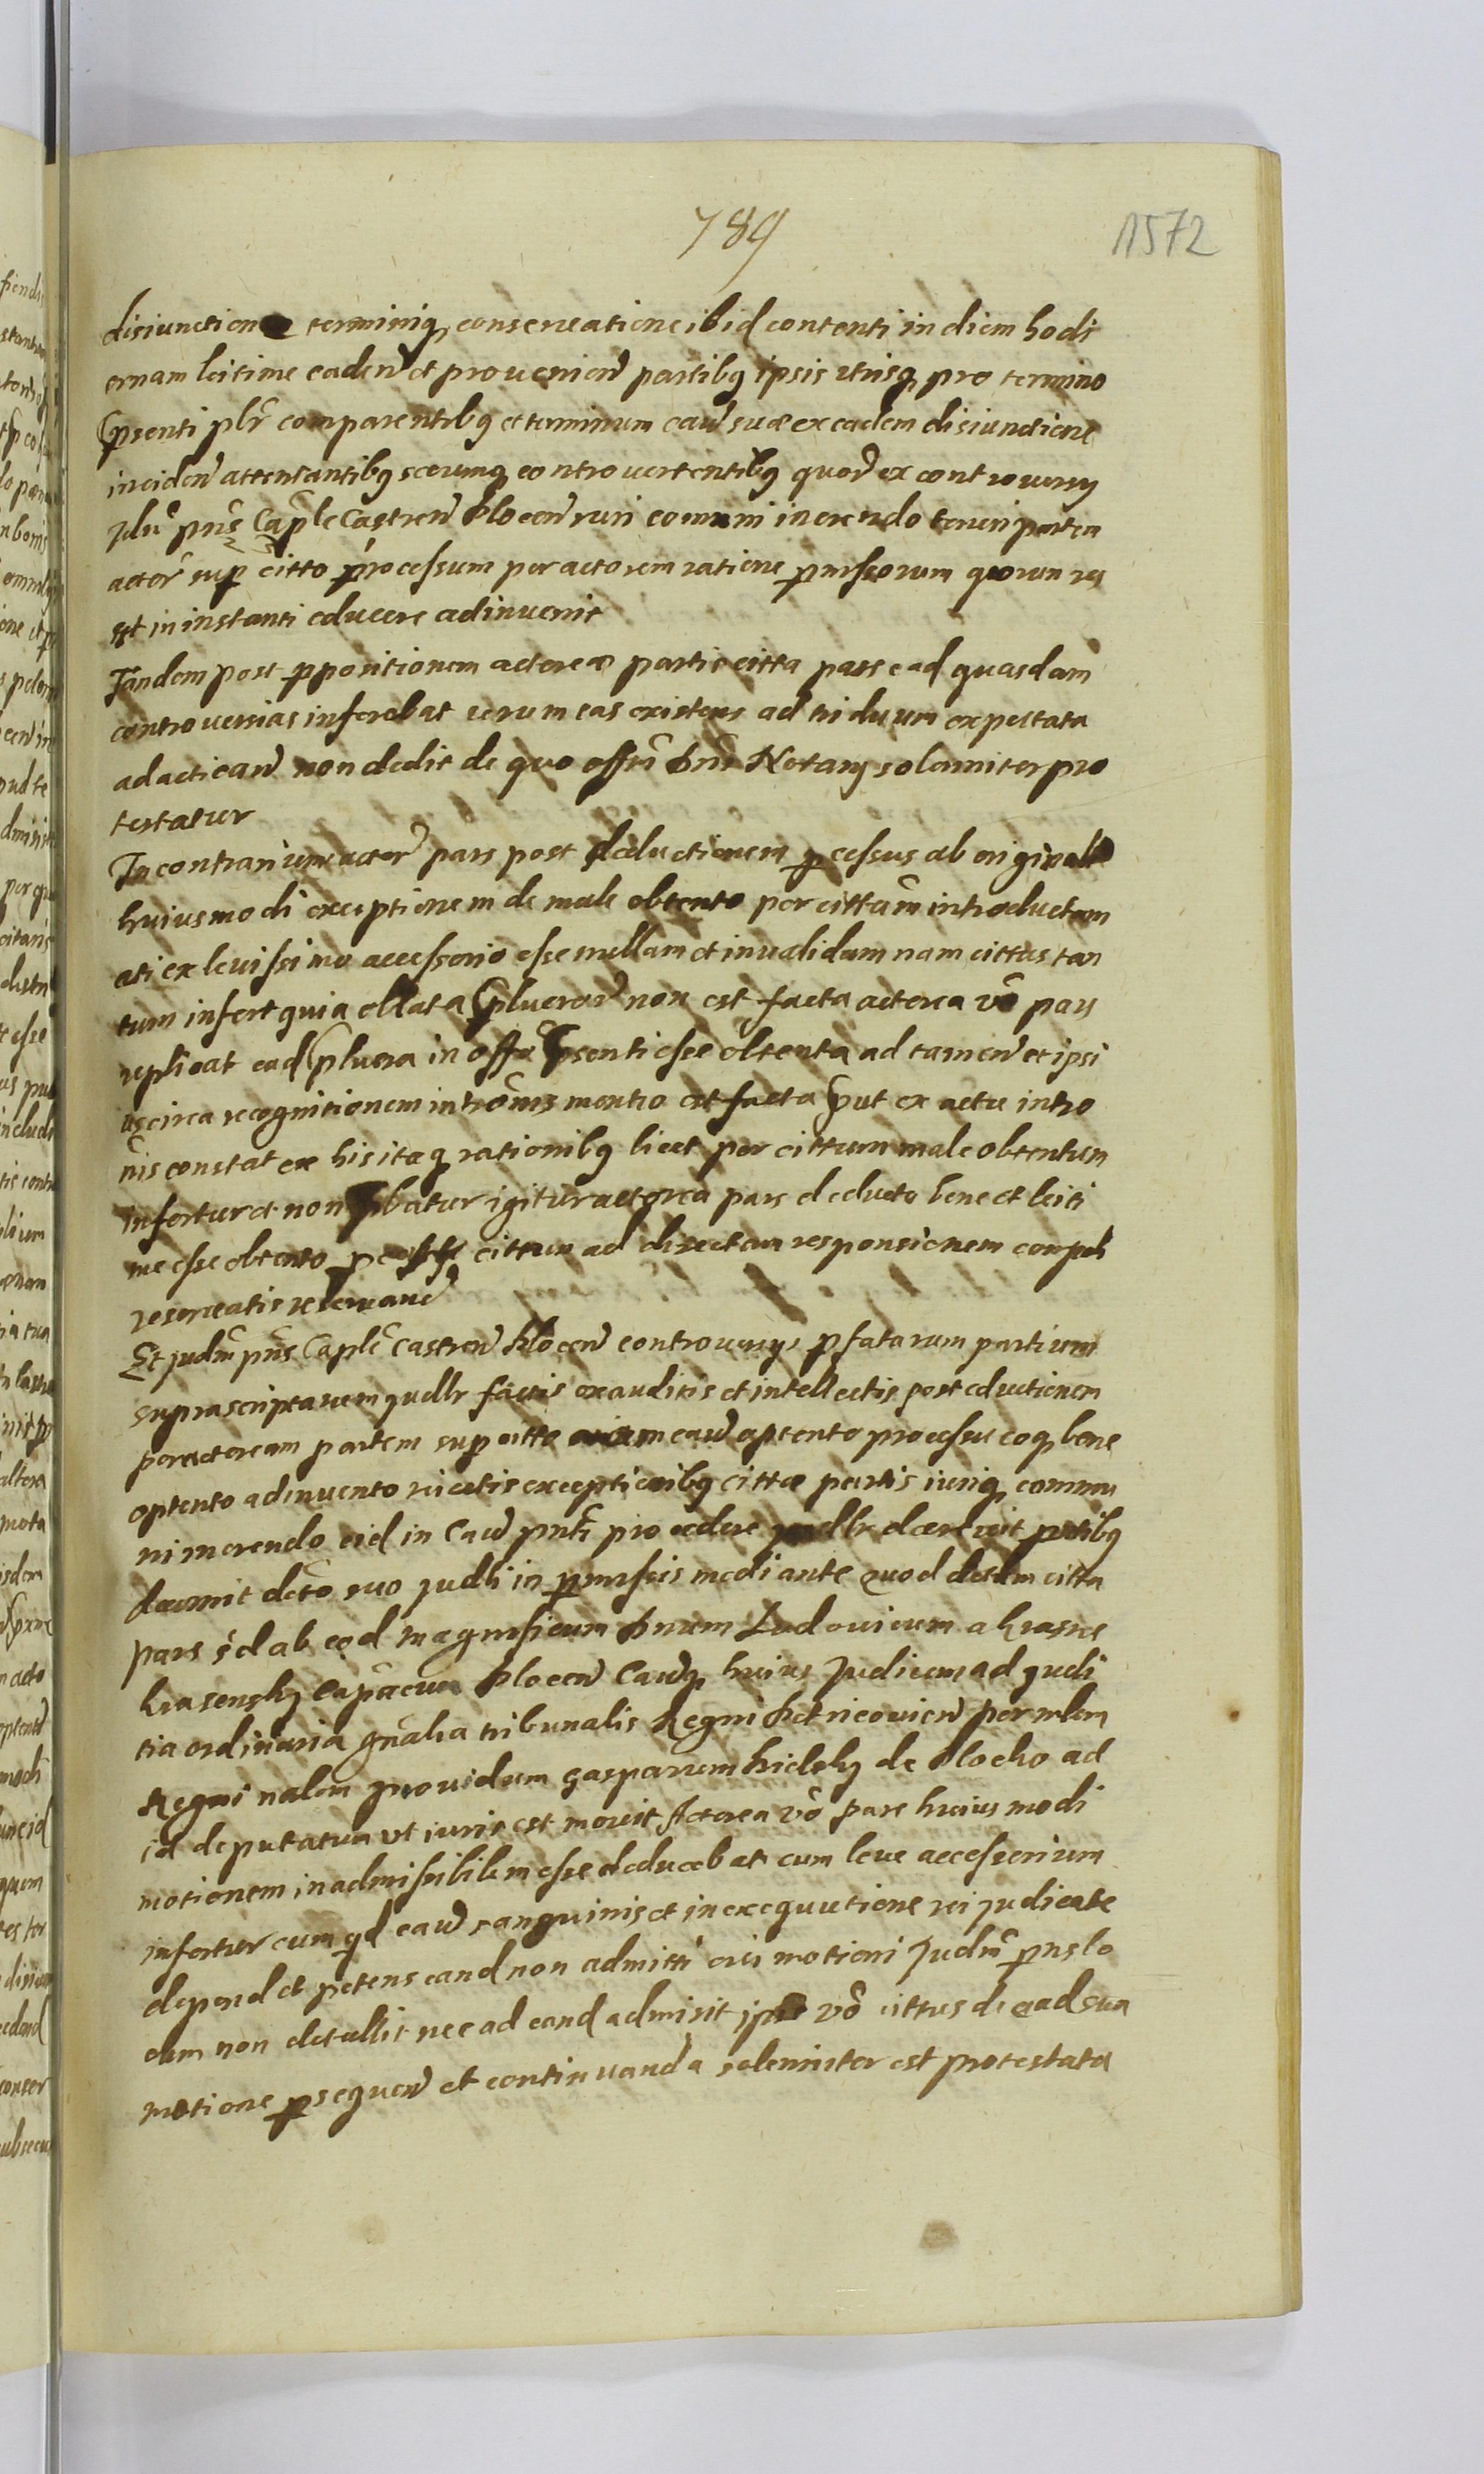 789
1572
disiunctione terminiq conserveatione ibid contenti in diem hodi
ernam leitime caden et provenien partibq ipsis utrisq pro termino
pnsenti plr comparentibq et terminum caus suae ex eadem disiunctione
inciden attentantibq secumq controvertentibq quor ex controversys
Judm pns Caple Castren Plocen iuri comuni inerendo
actor sup citto processum per actorem ratione pmissorum quorum res
est in instanti educere adinvenit
Tandem post ppositionem actoreae partis citta pars ead quasdam
controversias inferebat verum eas existens ad triduum expectata
ad acticand non dedit de quo offm pns Notary solemniter pro
testatur
In contrarium actor pars post deductionem pcessus ab originali
huiusmodi exceptionem de male obtento per cittam introductam
uti ex levissimo accessorio esse nullam et invalidam nam cittus tan
tum infert quia ollata non est facta actorea vo pars
replicat ead in offo pnsenti esse obtenta ad tamen et ipsi
us circa recognitionem introms mentio est facta put ex actu intro
nis constat ex his itaq rationibq licet per cittum male obtentum
infertur et non pbatur igitur actorea pars deducto bene et leiti
me esse obtento pcessu cittum ad directam responsionem compelli
reservatis reservand
Et judm pns Caple Castren Plocen controversys pfatarum partium
suprascriptarum judlr factis exauditis et intellectis post eductionem
per actoream partem sup citto in caus optento processu eoq bene
optento adinvento reiectis exceptionibq cittae partis iuriq commu
ni inerendo eid in caus pnti procedere judlr decrevit partibq
decernit decto suo judli in pmissis mediante quod dectum citta
pars id ab eod magnificum Dnum Ludovicum a Krasne
Krasensky Capaneum Plocen Causq huius Judicem ad judi
tia ordinaria gnalia tribunalis Regni Petricovien per mlem
Regni nalem providum Gasparum de Plocko ad
id deputatum ut iuris est movit Actorea vo pars huiusmodi
motionem inadmissibilem esse deducebat cum leve accessorium
infertur cumq qd caus sanguinis et in exequutione rei judicate
depend et petens eand non admitti cui motioni Judm pns lo
cum non detullit nec ad eand admisit ipse vo cittus de ead sua
motione psequen et continuanda solemniter est protestata